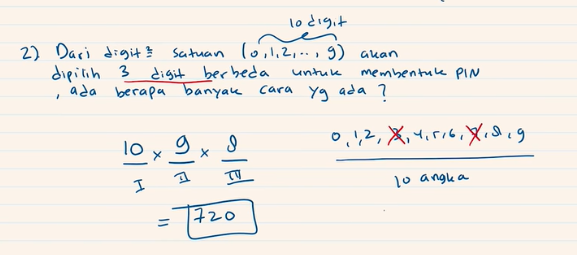 10 digit
2) Dari digit² satuan (0,1,2,..,9) akan
dipilih 3 digit berbeda untuk membentuk PIN
, ada berapa banyak cara yg ada ?
10 × 9 × 8
I II III
= 720
0,1,2,3,4,5,6,7,8,9
10 angka